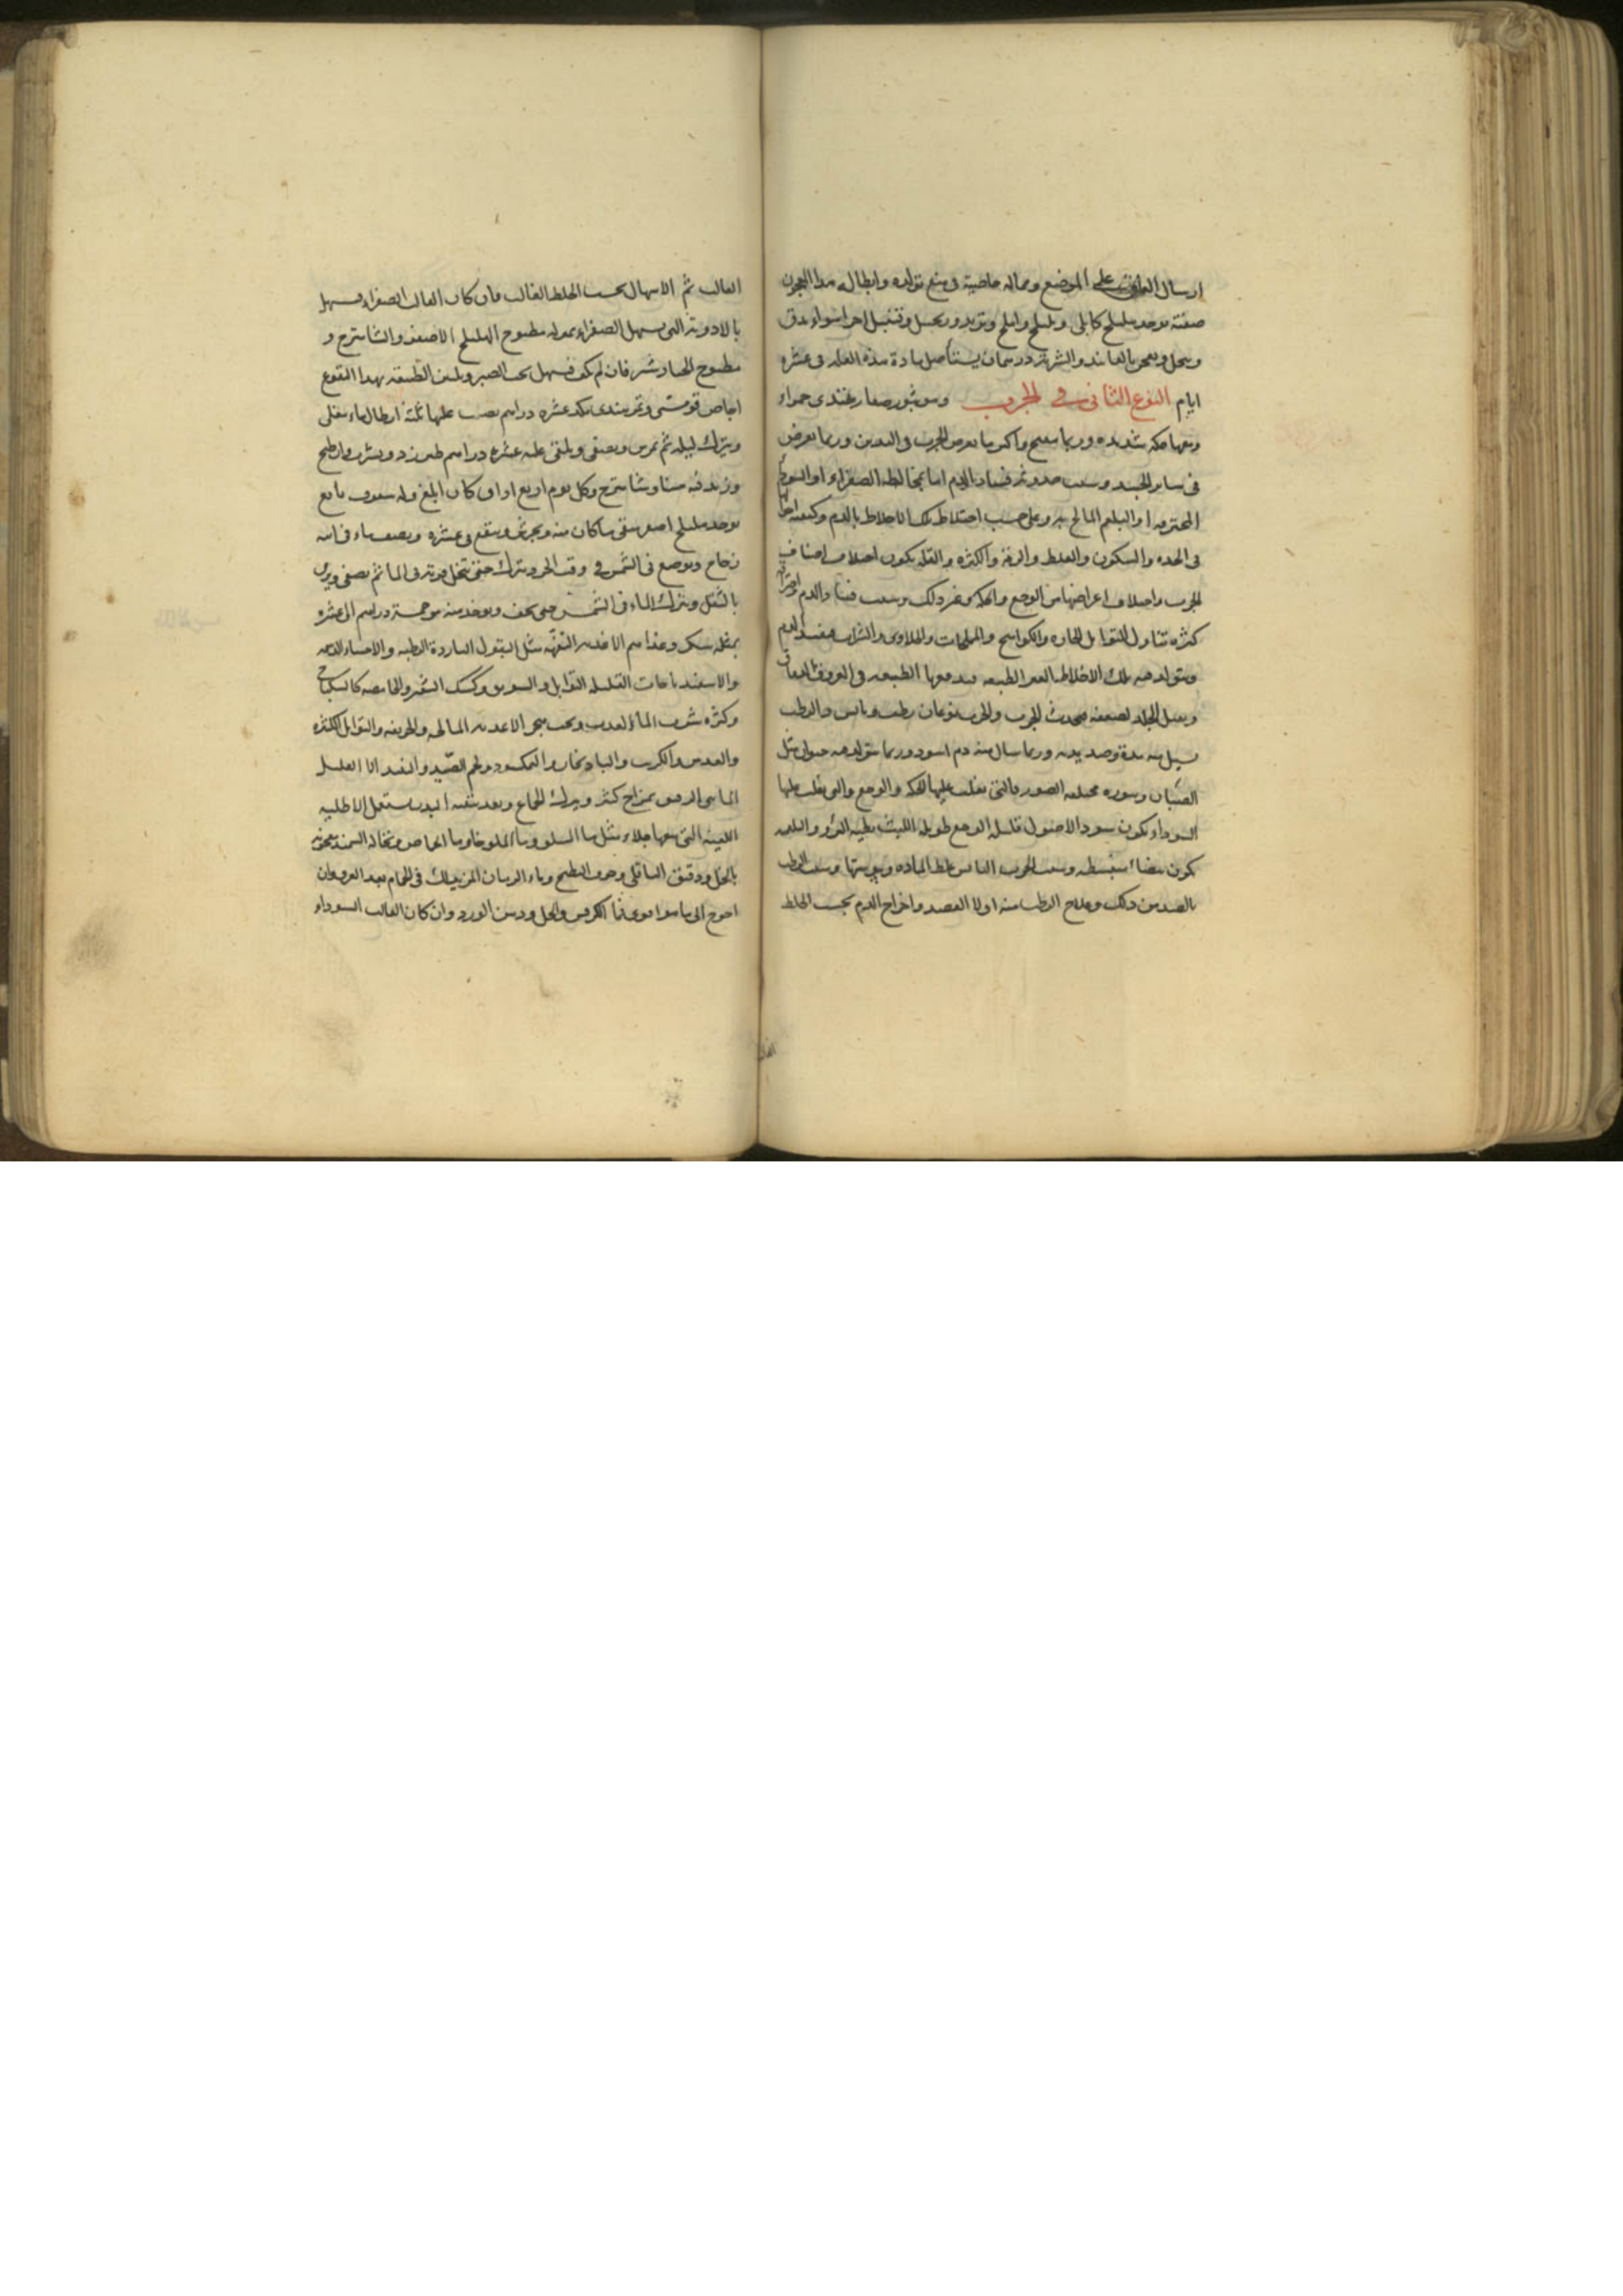 ارسال العلق على الموضع ومما له خاصية فى منع تولده وابطاله هذا المعجون
صفته يوخذ هليلج كابلى وبليلج واملج وتربد وزنجبيل وقنبيل اجزا سوا يدق
وينخل ويعجن بالفانيد والشربة درهمان يستأصل مادة هذه العلة فى عشرة
ايام النوع الثانى فى الجرب وهو بثور صغار يبتدى حمراء
ومعها حكة شديدة وربما تقيح واكثر ما يعرض الجرب فى اليدين وربما يعرض
فى ساير الجسد وسبب حدوثه فساد الدم اما بمخالطة الصفراء او السودا
المحترقة او البلغم المالح به وعلى حسب اختلاط تلك الاخلاط بالدم وكيفية
فى الحدة والسكون والغلظ والرقة والكثرة والقلة يكون اختلاف اصناف
الجرب واختلاف اعراضها من الوجع والحكة وغير ذلك وسبب فساد الدم
كثرة تناول التوابل الحارة والكواميخ والملوحات والحلاوى والشراب فيفسد الدم
ويتولد منه تلك الاخلاط الغير الطبيعية فيدفعها الطبيعة فى العروق
ويقبل الجلد لضعفه فيحدث الجرب والجرب نوعان رطب ويابس والرطب
يسيل منه مدة وصديد وربما سال منه دم اسود وربما يتولد منه حيوان مثل
الصئبان وبثوره مختلفة الصور فالتى يغلب عليها الحكة والوجع والتى يغلب عليها
السوداء يكون سود الاصول قليلة الوجع طويلة اللبث بطيئة البرؤ والبلغمية
يكون بيضاء منبسطة وسبب الجرب اليابس غلظ المادة ويبوستها وسبب الرطب
بالضد من ذلك وعلاج الرطب منه اولا الفصد واخراج الدم بحسب الخلط
الغالب ثم الاسهال بحسب الخلط الغالب فان كان الغالب الصفراء فيسهل
بالادوية التى يسهل الصفراء بمثل مطبوخ الهليلج الاصفر والشاهترج و
مطبوخ الخيارشنبر فان لم يكف فيسهل بحب الصبر ويلين الطبيعة بهذا النقوع
اجاص وتمر هندى عشرة دراهم يصب عليها ثلثة ارطال ماء مغلى
ويترك ليلة ثم يمرس ويصفى ويلقى عليه عشرة دراهم طبرزد ويشرب وان طبخ
وزيد فيه سنا وشاهترج وكل يوم اربع اواق كان ابلغ وله سفوف نافع
يوخذ هليلج اصفر ويجرش وينقع فى عشرة ونصف ماء فى اناء
زجاج ويوضع فى الشمس فى وقت الحر ويترك حتى تنحل قوته فى الما ثم يصفى ويرمى
بالثفل ويترك الماء فى الشمس حتى يجف ويوخذ منه من خمسة دراهم الى عشرة
بمثله سكر وغذاهم الاغذية التفهة مثل البقول الباردة الرطبة والاحساء الدسمة
والاسفيدباجات القليلة التوابل والسويق وكشك الشعير والحامضة كالسكباج
وكثرة شرب الماء العذب ويجب هجر الاغذية المالحة والحريفة والتوابل الكثيرة
والعدس والكرنب والباذنجان والنمكسود ولحم الصيد والنبيذ الا القليل
المائى الرقيق بمزاج كثير ويترك الجماع وبعد تنقية البدن يستعمل الاطلية
اللينة التى معها جلاء مثل ما السلق وما الحماض ونخالة السميد معجونة
بالخل ودقيق الباقلى وجوف البطيخ وماء الرمان المز يدلك فى الحمام بعد العرق وان
احوج الى ما هو اقوى فما الكرفس والخل ودهن الورد وان كان الغالب السوداء